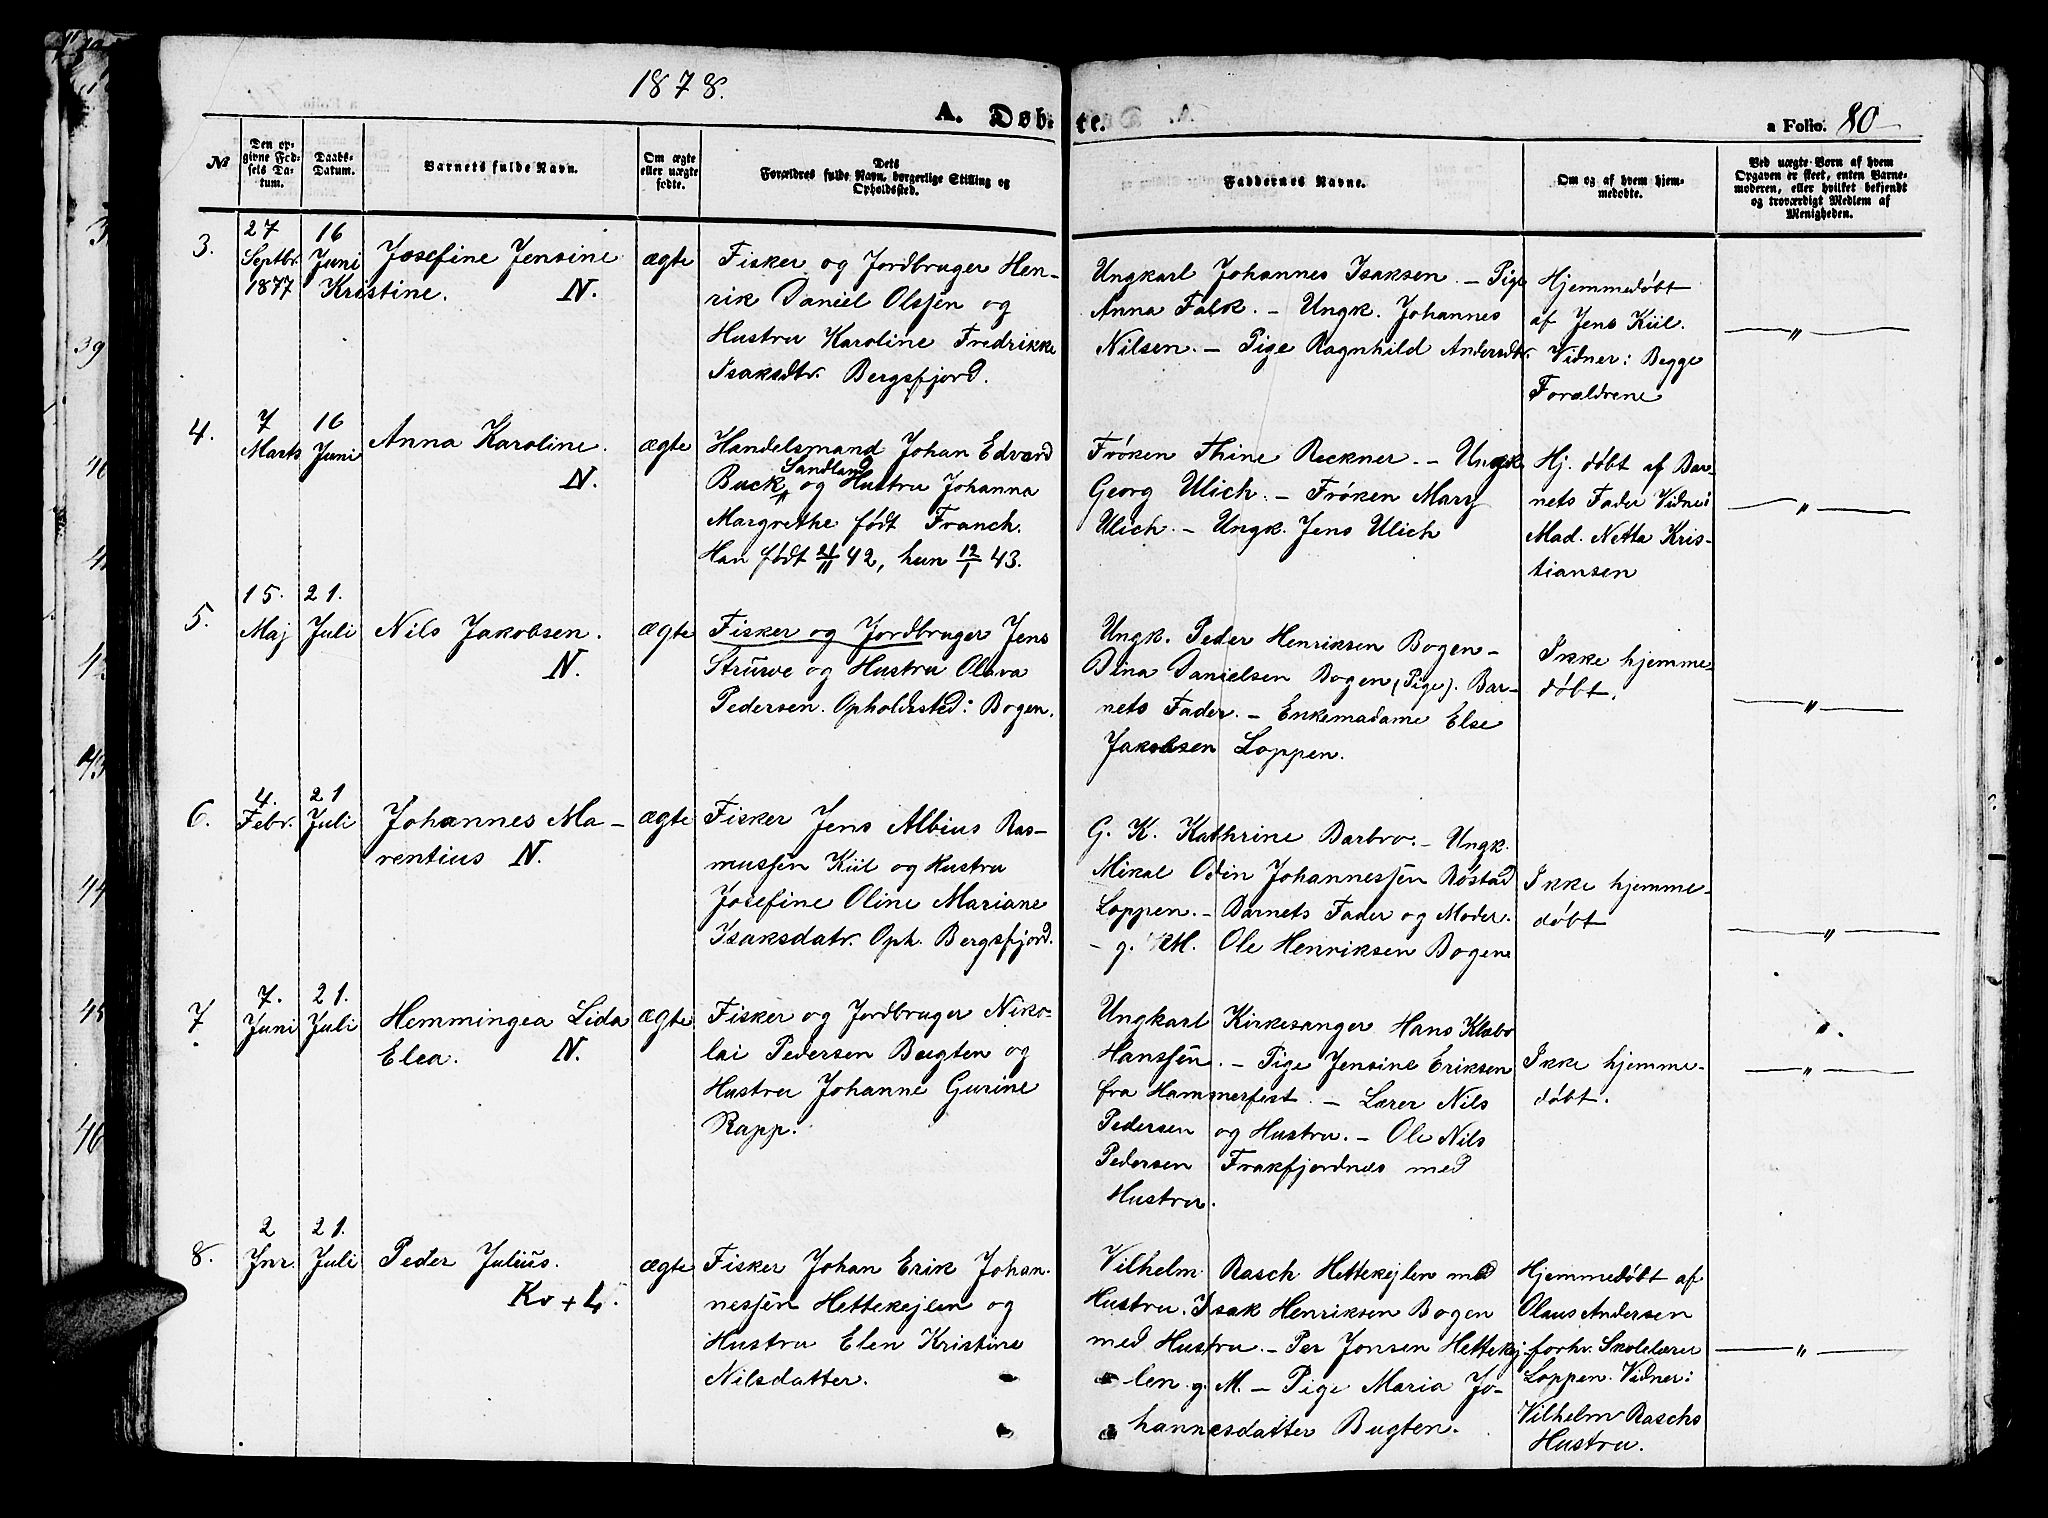 1878.
A. Døbte.
a Folio. 80
№
Den opgivne Fødsels Datum.
Daabs-Datum.
Barnets fulde Navn.
Om ægte eller uægte fødte.
Dets Forældres fulde Navn, borgerlige Stilling og Opholdssted.
Faddernes Navne.
Om og af hvem hjemmedøbte.
Ved uægte Børn af hvem Opgaven er skeet, enten Barnemoderen, eller hvilket bekjendt og troværdigt Medlem af Menigheden.
3.
27 Septbr. 1877
16 Juni
Josefine Jensine
Kristine. N.
ægte
Fisker og Jordbruger Hen-
rik Daniel Olssen og
Hustru Karoline Fredrikke
Isaksdtr. Bergsfjord.
Ungkarl Johannes Isaksen. – Pige
Anna Falk. – Ungk. Johannes
Nilsen. – Pige Ragnhild Andersdtr.
Hjemmedøbt
af Jens Kiil.
Vidner: Begge
Forældrene
— " —
4.
7 Marts
16 Juni
Anna Karoline.
N.
ægte
Handelsmand Johan Edvard
Sandland
Buck og Hustru Johanna
Margrethe født Franch.
Han født 21/11 42, hun 12/1 43.
Frøken Thine Reckner. – Ungk.
Georg Ulich. – Frøken Mary
Ulich. – Ungk. Jens Ulich
Hj. døbt af Bar-
nets Fader Vidne:
Mad. Netta Kris-
tiansen
— " —
5.
15. Maj
21. Juli
Nils Jakobsen.
N.
ægte
Fisker og Jordbruger Jens
Struwe og Hustru Olava
Pedersen. Opholdssted: Bogen.
Ungk. Peder Henriksen Bogen –
Dina Danielsen Bogen (Pige). Bar-
nets Fader. – Enkemadame Else
Jakobsen Loppen.
Ikke hjemme
døbt.
— " —
6.
4. Febr.
21 Juli
Johannes Ma-
rentius N.
ægte
Fisker Jens Albius Ras-
mussen Kiil og Hustru
Josefine Oline Mariane
Isaksdatr. Oph. Bergsfjord.
G. K. Kathrine Barbro. – Ungk.
Mikal Odin Johannessen Røstad
Loppen. – Barnets Fader og Moder.
– g. M. Ole Henriksen Bogen
Ikke hjemme-
døbt
— " —
7.
7. Juni
21. Juli
Hemmingea Lida
Elea. N.
ægte
Fisker og Jordbruger Niko-
lai Pedersen Bugten og
Hustru Johanne Gurine
Rapp.
Ungkarl Kirkesanger Hans Klæbo
Hanssen. – Pige Jensine Eriksen
fra Hammerfest. – Lærer Nils
Pedersen og Hustru. – Ole Nils
Pedersen Frakfjordnes med
Hustru.
Ikke hjemme-
døbt.
— " —
8.
2 Jnr.
21. Juli
Peder Julius.
Kv + L.
ægte
Fisker Johan Erik Johan-
nessen Hettekejlen og
Hustru Elen Kristine
Nilsdatter.
Vilhelm Rasch Hettekejlen med
Hustru. Isak Henriksen Bogen
med Hustru. – Per Jonsen Hettekej-
len g. M. – Pige Maria Jo-
hannesdatter Bugten.
Hjemmedøbt af
Olaus Andersen
forhv. Skolelærer
Loppen. Vidner:
Vilhelm Raschs
Hustru.
— " —
39
40
43
44
45
46